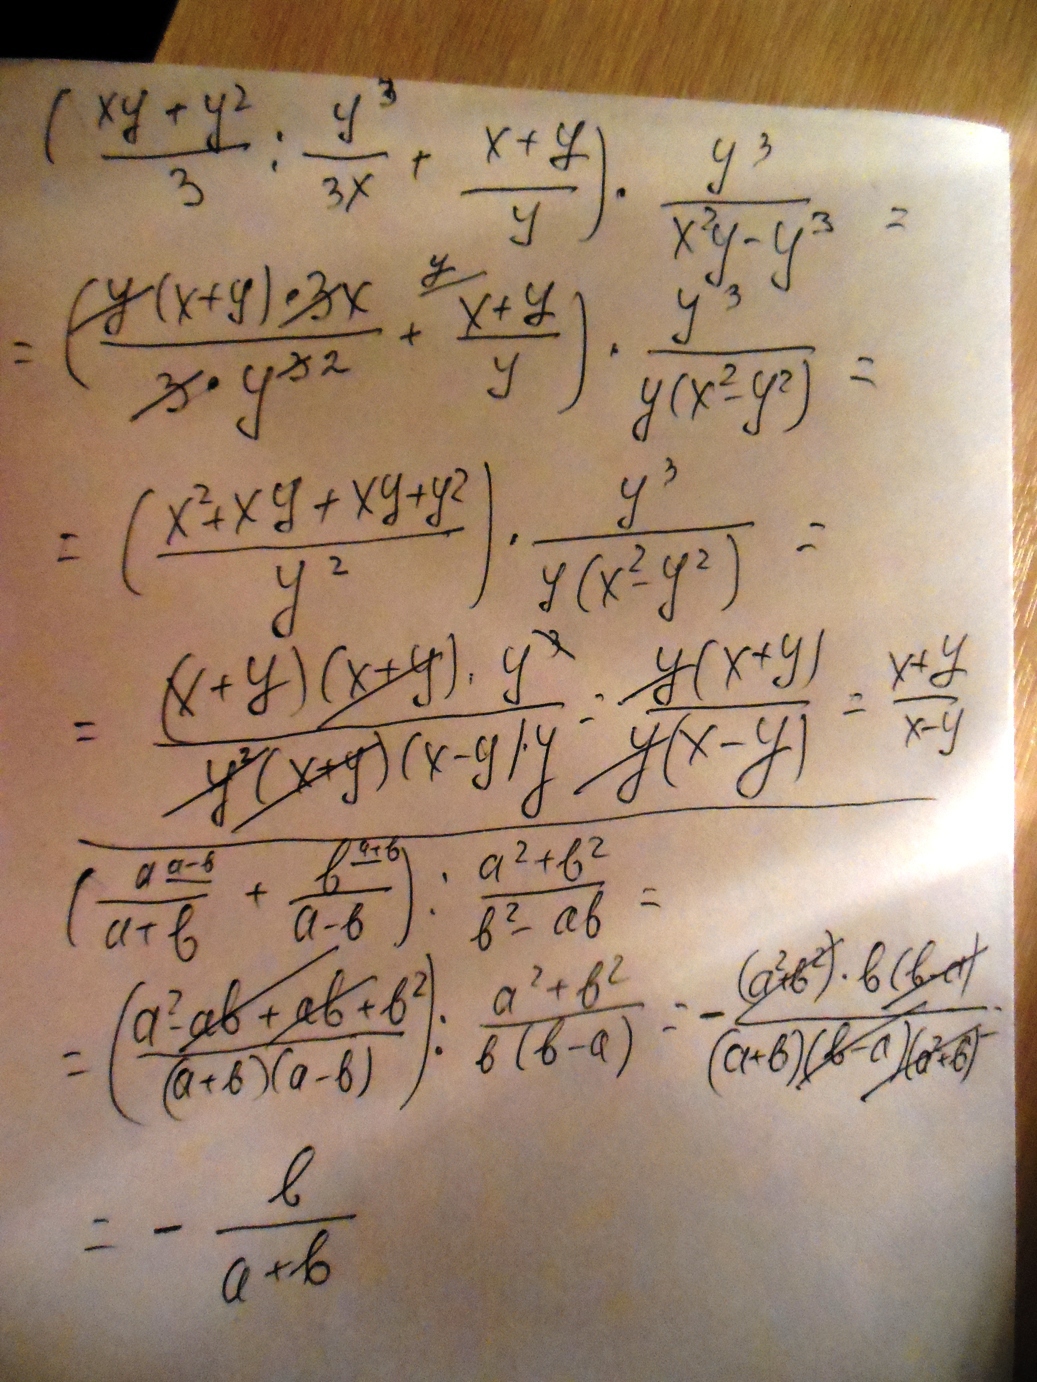 ( (xy + y²)/3 : y³/3x + (x + y)/y ) · y³/(x²y - y³) =
= ( (y(x+y) · 3x)/(3 · y³ ²) + ʸ (x + y)/y ) · y³/(y(x² - y²)) =
= ( (x² + xy + xy + y²)/y² ) · y³/(y(x² - y²)) =
= ((x + y)(x + y) · y³)/(y²(x+y)(x - y) · y) = (y(x+y))/(y(x - y)) = (x+y)/(x-y)
( a ᵃ⁻ᵇ/(a + b) + b ᵃ⁺ᵇ/(a - b) ) : (a² + b²)/(b² - ab) =
= ( (a² - ab + ab + b²)/((a+b)(a-b)) ) : (a² + b²)/(b(b - a)) = - ((a²+b²) · b(b-a))/((a+b)(b-a)(a²+b²)) =
= - b/(a + b)